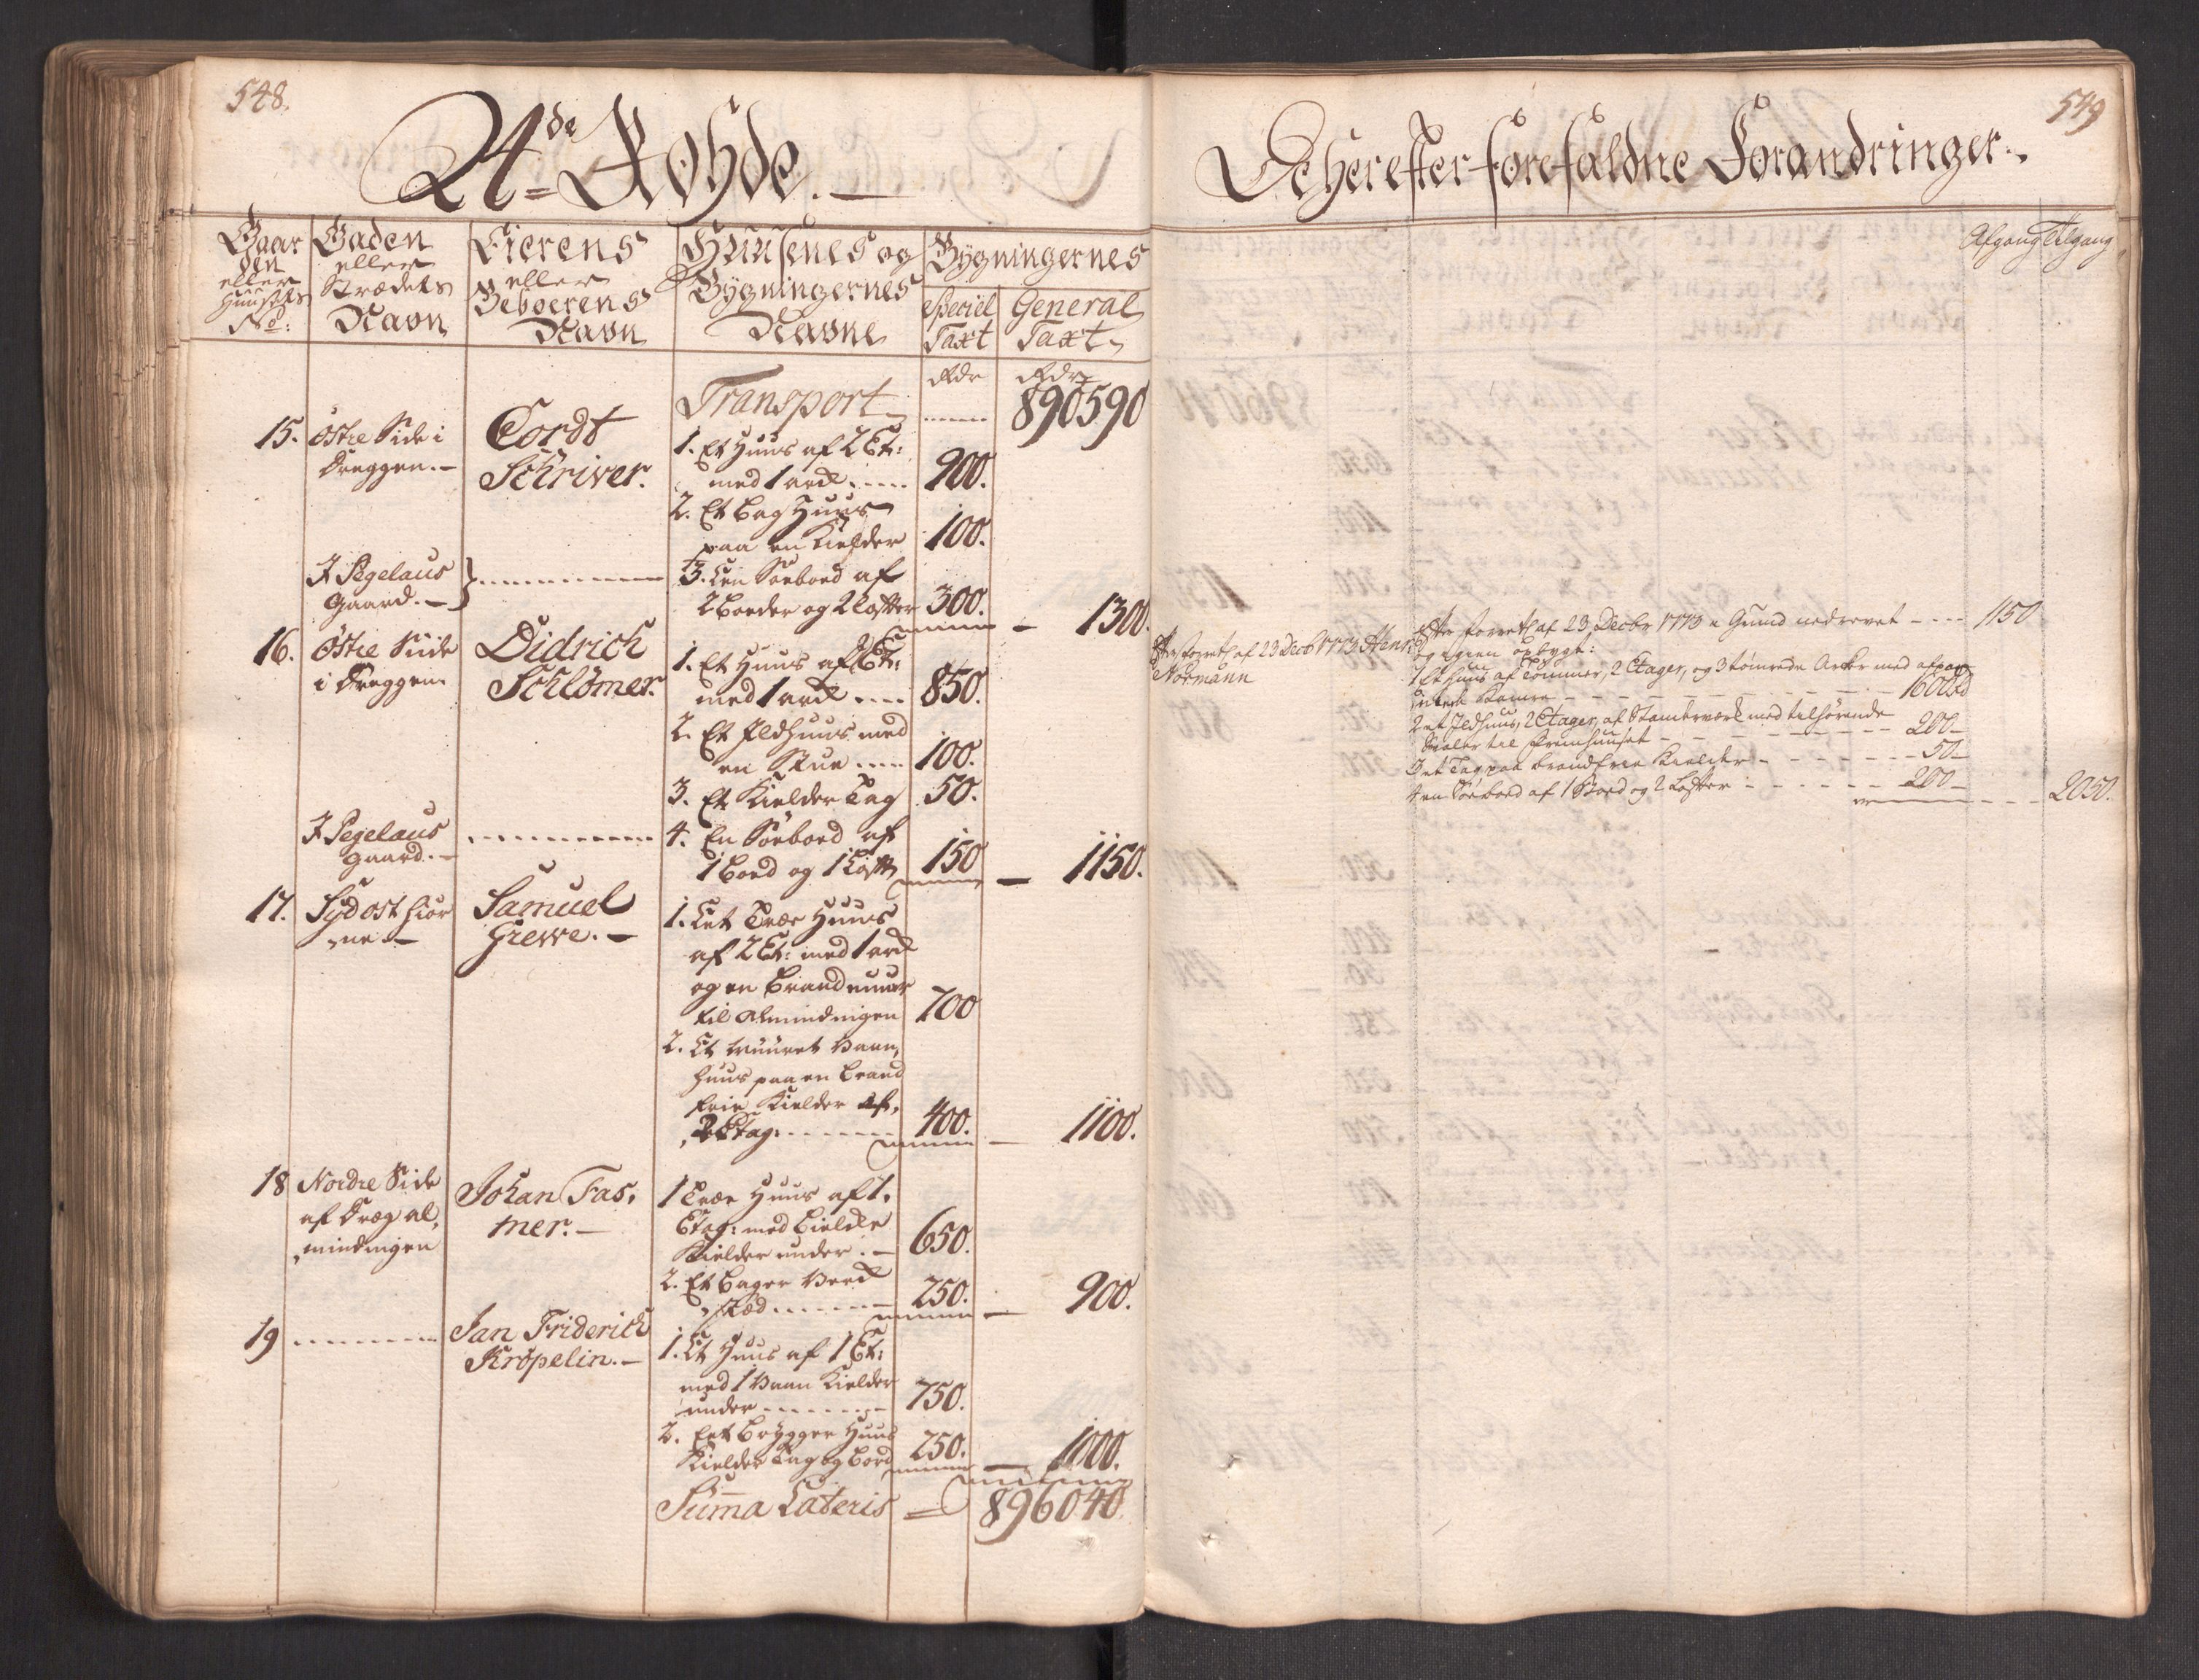 548.
24de Rohde.
Gaar
den
eller
Huusets
No:
Gaden
eller
Strædets
Navn
Eierens
eller
Beboerens
Navn
Huusenes og
Bygningernes
Navne
Bygningernes
Speciel
Taxt
General
Taxt
Rdr
Rdr
Transport
890590
15.
Østre Side i
Dreggen.
Cordt
Schriver.
1. Et Huus af 2 Et:
med 1 arck
900.
2. Et Bag Huus
paa en Kielder
100.
J Pegelaus
Gaard.
3. Een Søeboed af
2 Boeder og 2 Lofter
300.
1300.
16.
Østre Siide
i Dreggen.
Didrich
Schlömer.
1. Et Huus af 2 Et:
med 1 arck
850.
2. Et Ildhuus med
en Stue
100.
3. Et Kielder Tag
50.
J Pegelaus
Gaard.
4. En Søeboed af
1 Boed og 1 Loft
150
1150.
17.
Sydost hiør
ne
Samuel
Grewe.
1. Eet Træe Huus
af 2 Et: med 1 arck
og en Brandmuur
til Almindingen
700
2. Et muuret Vaan,
huus paa en Brand
frie Kielder af,
2 Etag:
400.
1100.
18
Nordre Side
af Dræg al,
mindingen
Johan Fas,
mer.
1 Træe Huus af 1.
Etag: med
Kielder under
650.
2. Et Bager Verck
sted
250.
900.
19
Jan Friderich
Kröpelin.
1. Et Huus af 1 Et:
med 1 Vaan Kielder
under
750.
2. Eet Brygger Huus
Kielder Tag og Boed
250.
1000.
Summa Lateris
896040.
549
De herefter forefaldne Forandringer.
Afgang
Tilgang
Efter forretn af 23 Decbr 1773 Henr:
Normann
Efter forretn af 23 Decbr 1773 er Grund nedrevet
1150
og igien opbygt:
1 Et Huus af Tømmer, 2 Etager, og 3 tømrede Arker med
1600 Rd
2 et Ildhuus, 2 Etager, af Stænderværk med tilhørende
Svaler til Fremhuuset
200
3 et Tag paa brandfrie Kielder
50
4 en Søeboed af 1 Boed og 2 Lofter
200
2050.